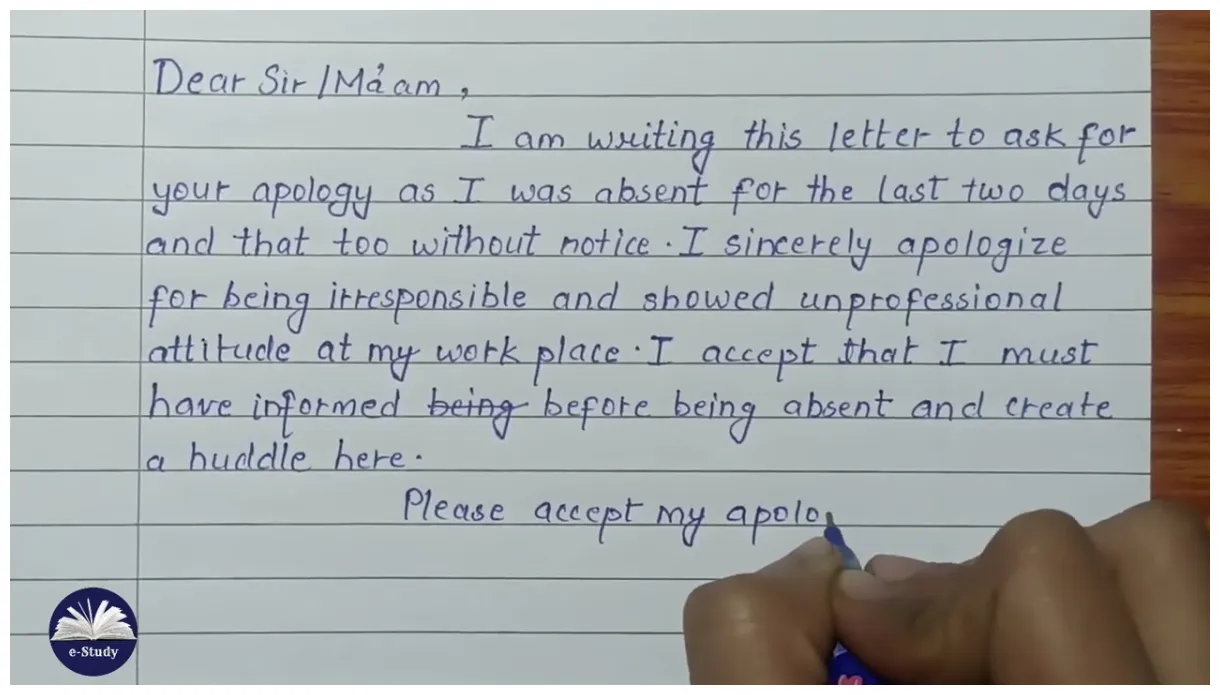 Dear Sir/Ma'am,
I am writing this letter to ask for
your apology as I was absent for the last two days
and that too without notice. I sincerely apologize
for being irresponsible and showed unprofessional
attitude at my work place. I accept that I must
have informed being before being absent and create
a huddle here.
Please accept my apolo
e-Study